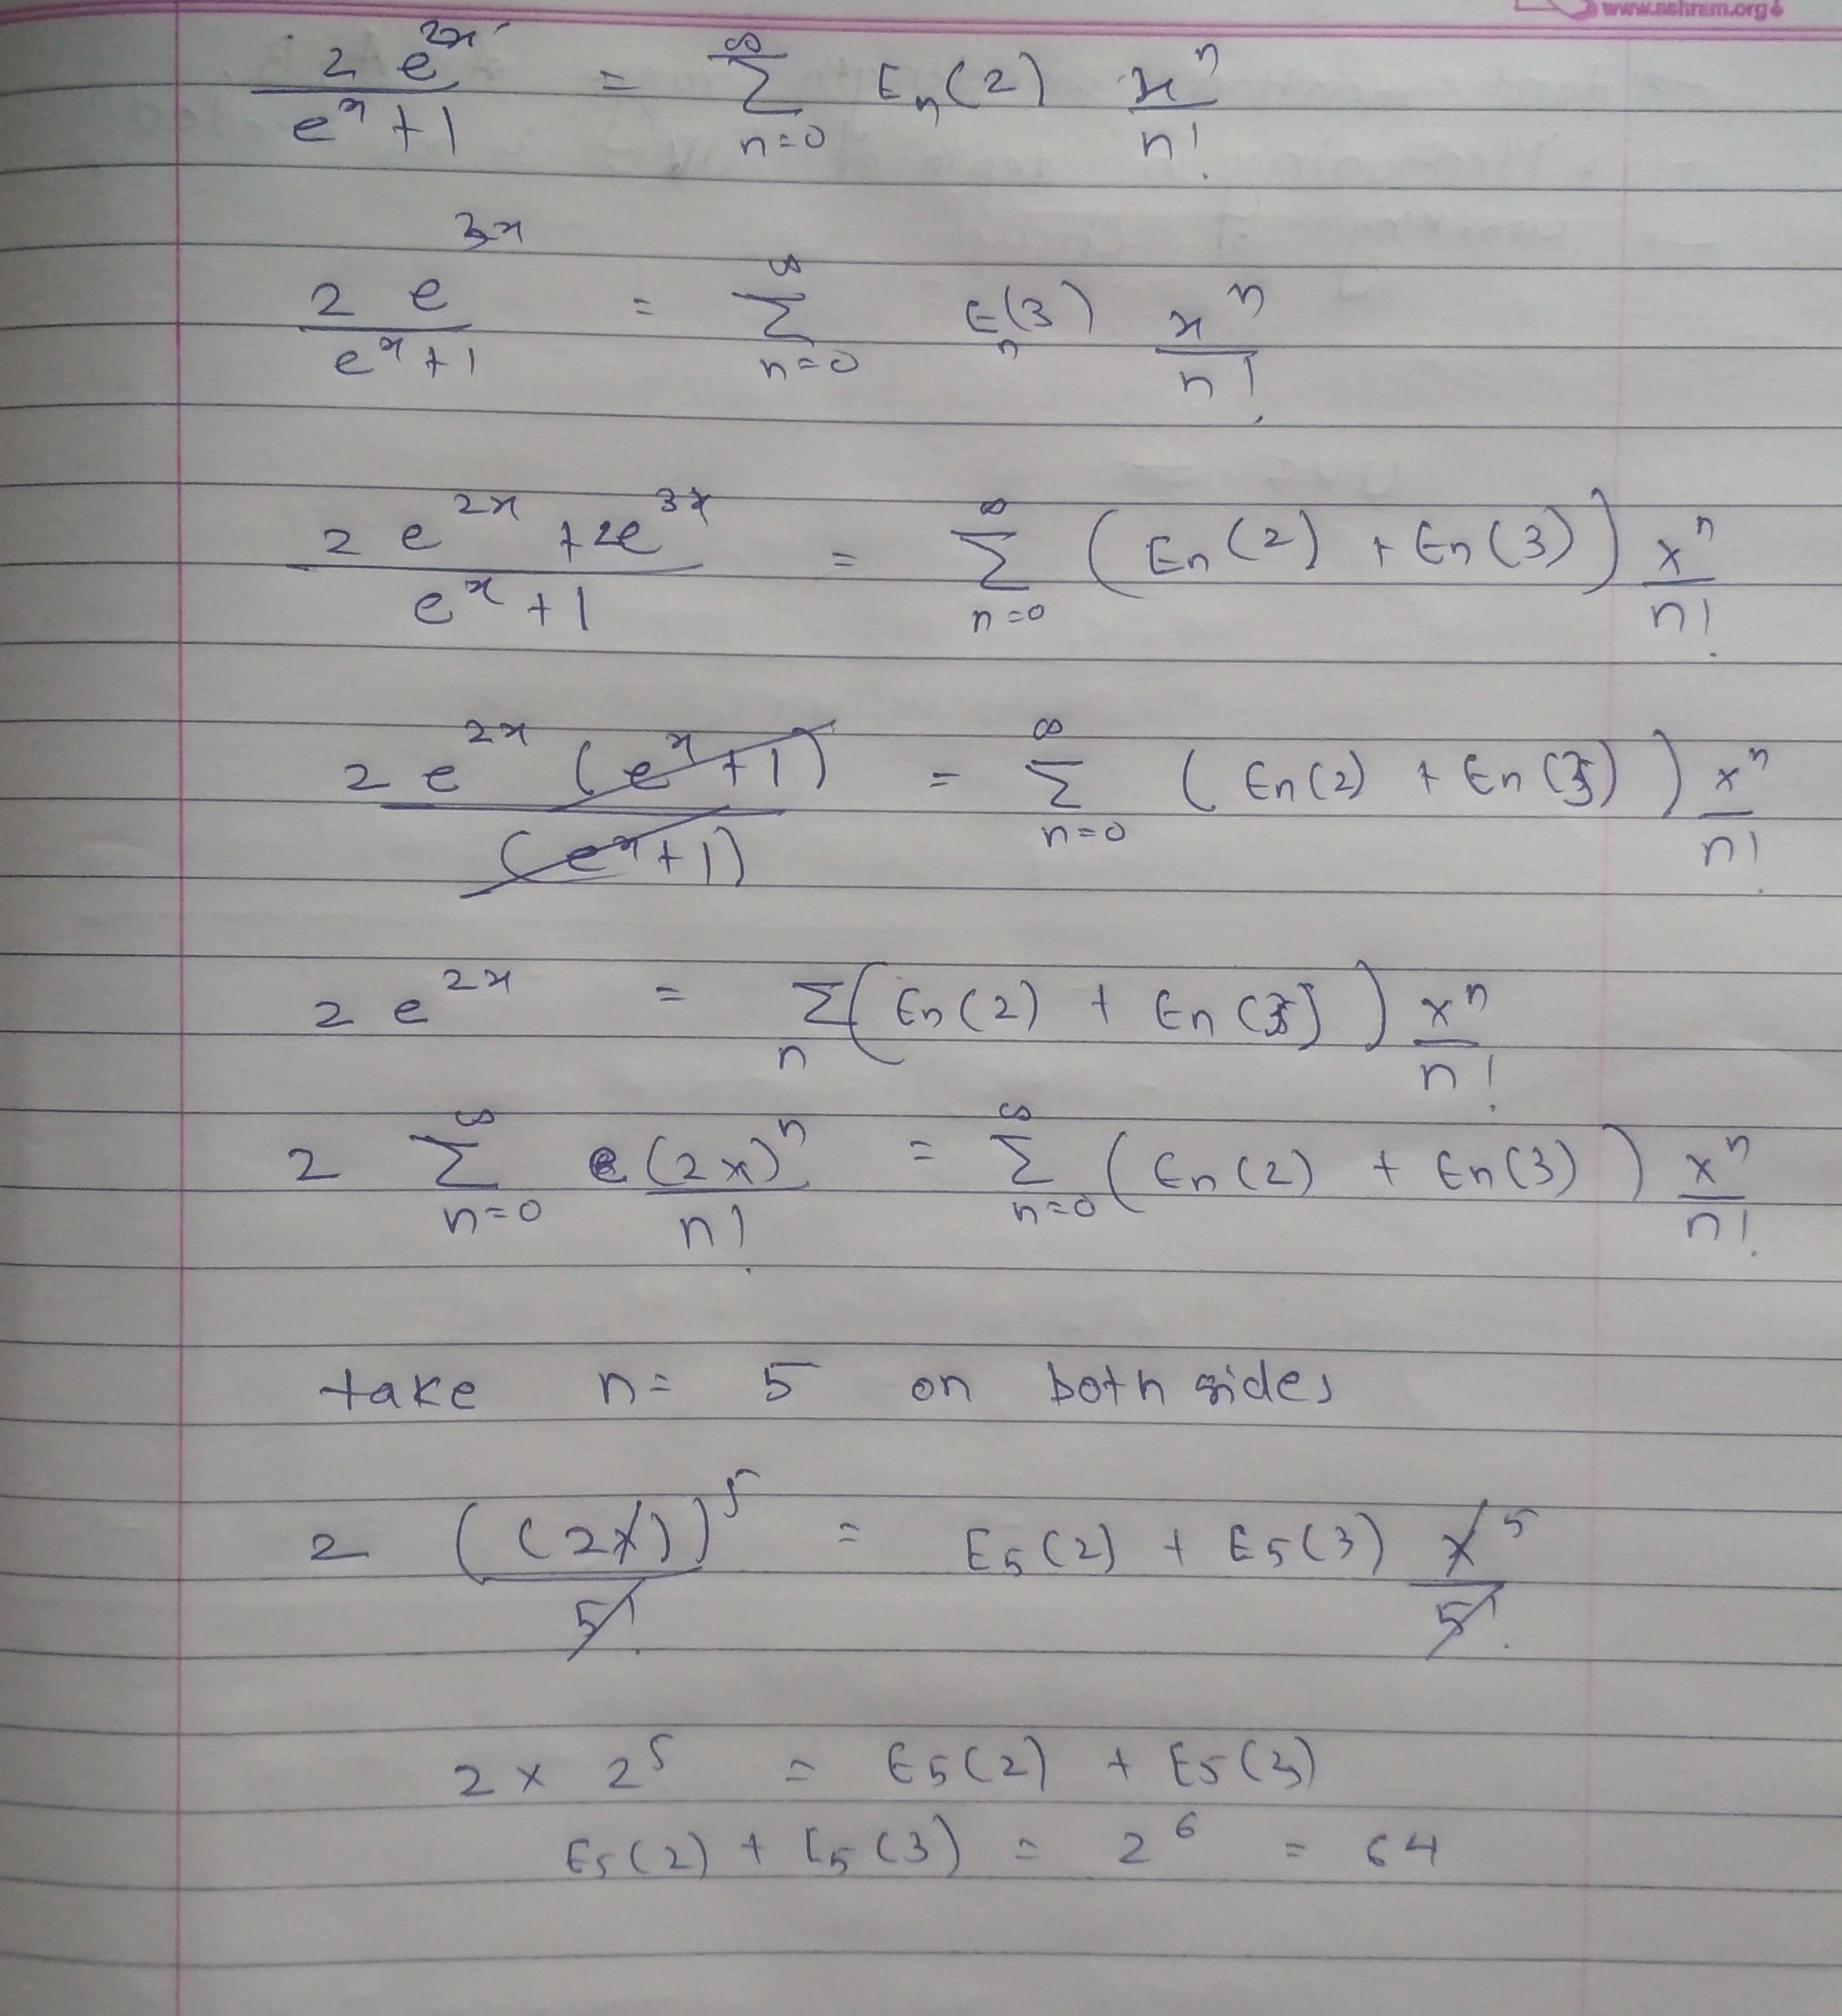 www.ashram.org
2 e^{2x} / (e^x + 1) = ∑_{n=0}^{∞} E_n(2) x^n / n!
2 e^{3x} / (e^x + 1) = ∑_{n=0}^{∞} E_n(3) x^n / n!
(2 e^{2x} + 2e^{3x}) / (e^x + 1) = ∑_{n=0}^{∞} (En(2) + En(3)) x^n / n!
2 e^{2x} (e^x + 1) / (e^x + 1) = ∑_{n=0}^{∞} (En(2) + En(3)) x^n / n!
2 e^{2x} = ∑_n (En(2) + En(3)) x^n / n!
2 ∑_{n=0}^{∞} (2x)^n / n! = ∑_{n=0}^{∞} (En(2) + En(3)) x^n / n!
take n = 5 on both sides
2 ((2x))^5 / 5! = E5(2) + E5(3) x^5 / 5!
2 × 2^5 = E5(2) + E5(3)
E5(2) + E5(3) = 2^6 = 64